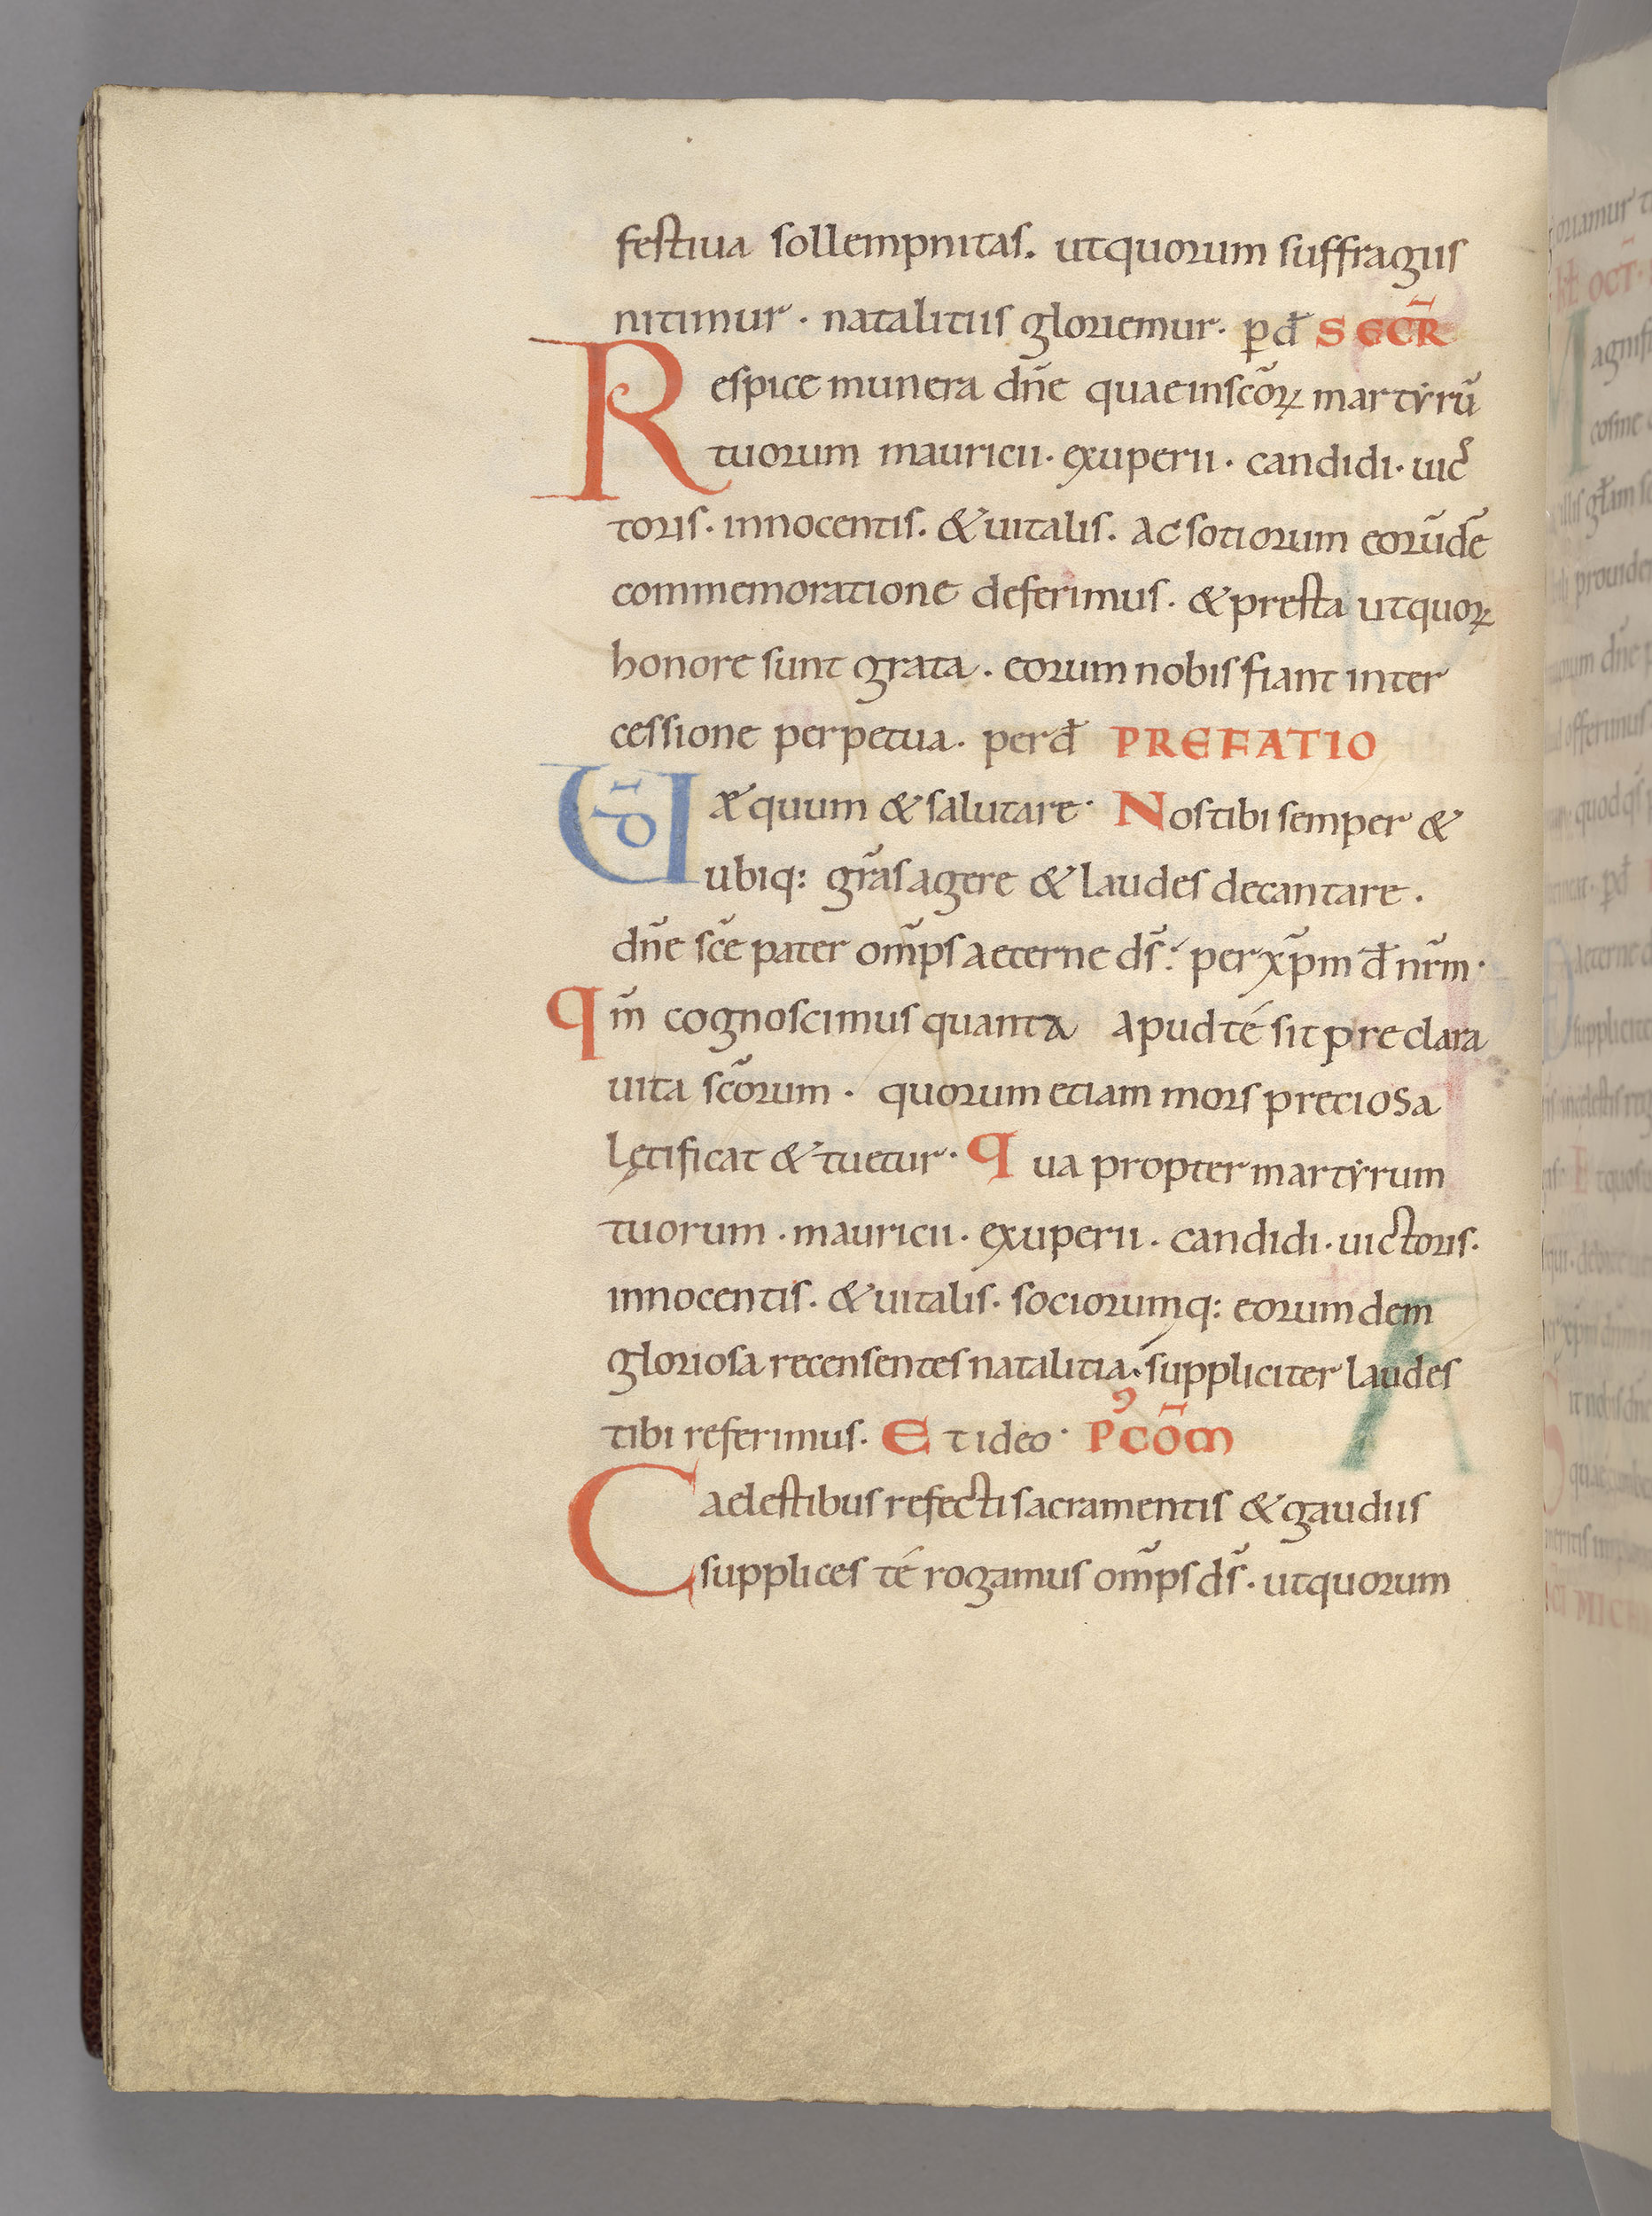 festiua sollempnitas. utquorum suffragiis
nitimur · natalitiis gloriemur · p̲ đ SECR̄
Respice munera dñe quaeinscōꝝ martẏrū
tuorum mauricii · exuperii · candidi · uic
toris · innocentis. &uitalis. ac sotiorum eorūdē
commemoratione deferimus · &presta utquoꝝ
honore sunt grata · eorum nobis fiant inter
cessione perpetua · perđ PREFATIO
UD̄ æquum & salutare · Nos tibi semper &
ubiq: grās agere & laudes decantare ·
dñe scē pater omp̄s aeterne ds̄ : per xp̄m đ nr̄m ·
qm̄ cognoscimus quanta apud té sit preclara
uita scōrum · quorum etiam mors preciosa
lętificat & tuetur · qua propter martẏrum
tuorum · mauricii · exuperii · candidi · uictoris ·
innocentis · &uitalis · sociorumq: eorumdem
gloriosa recensentes natalitia · suppliciter laudes
tibi referimus · Et ideo · P᾿CŌM
Caelestibus refecti sacramentis & gaudiis
supplices té rogamus omp̄s ds̄ · utquorum